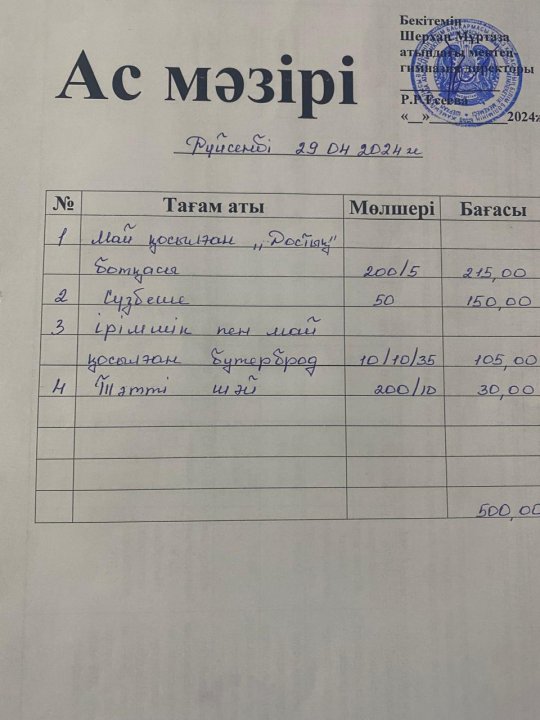 Бекітемін
Шерхан Мұртаза
атындағы мектеп-
гимназия директоры
Р.Г. Есева
«__»____________2024ж
Ас мәзірі
Дүйсенбі 29 04 2024ж
№ Тағам аты Мөлшері Бағасы
1 Май қосылған „Достық"
ботқасы 200/5 215,00
2 Сүзбеше 50 150,00
3 ірімшік пен май
қосылған бутерброд 10/10/35 105,00
4 Тәтті шәй 200/10 30,00
500,00